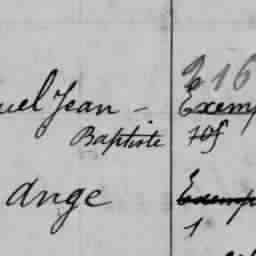 216
uel Jean - Exemp
Baptiste
ange Exemp
1